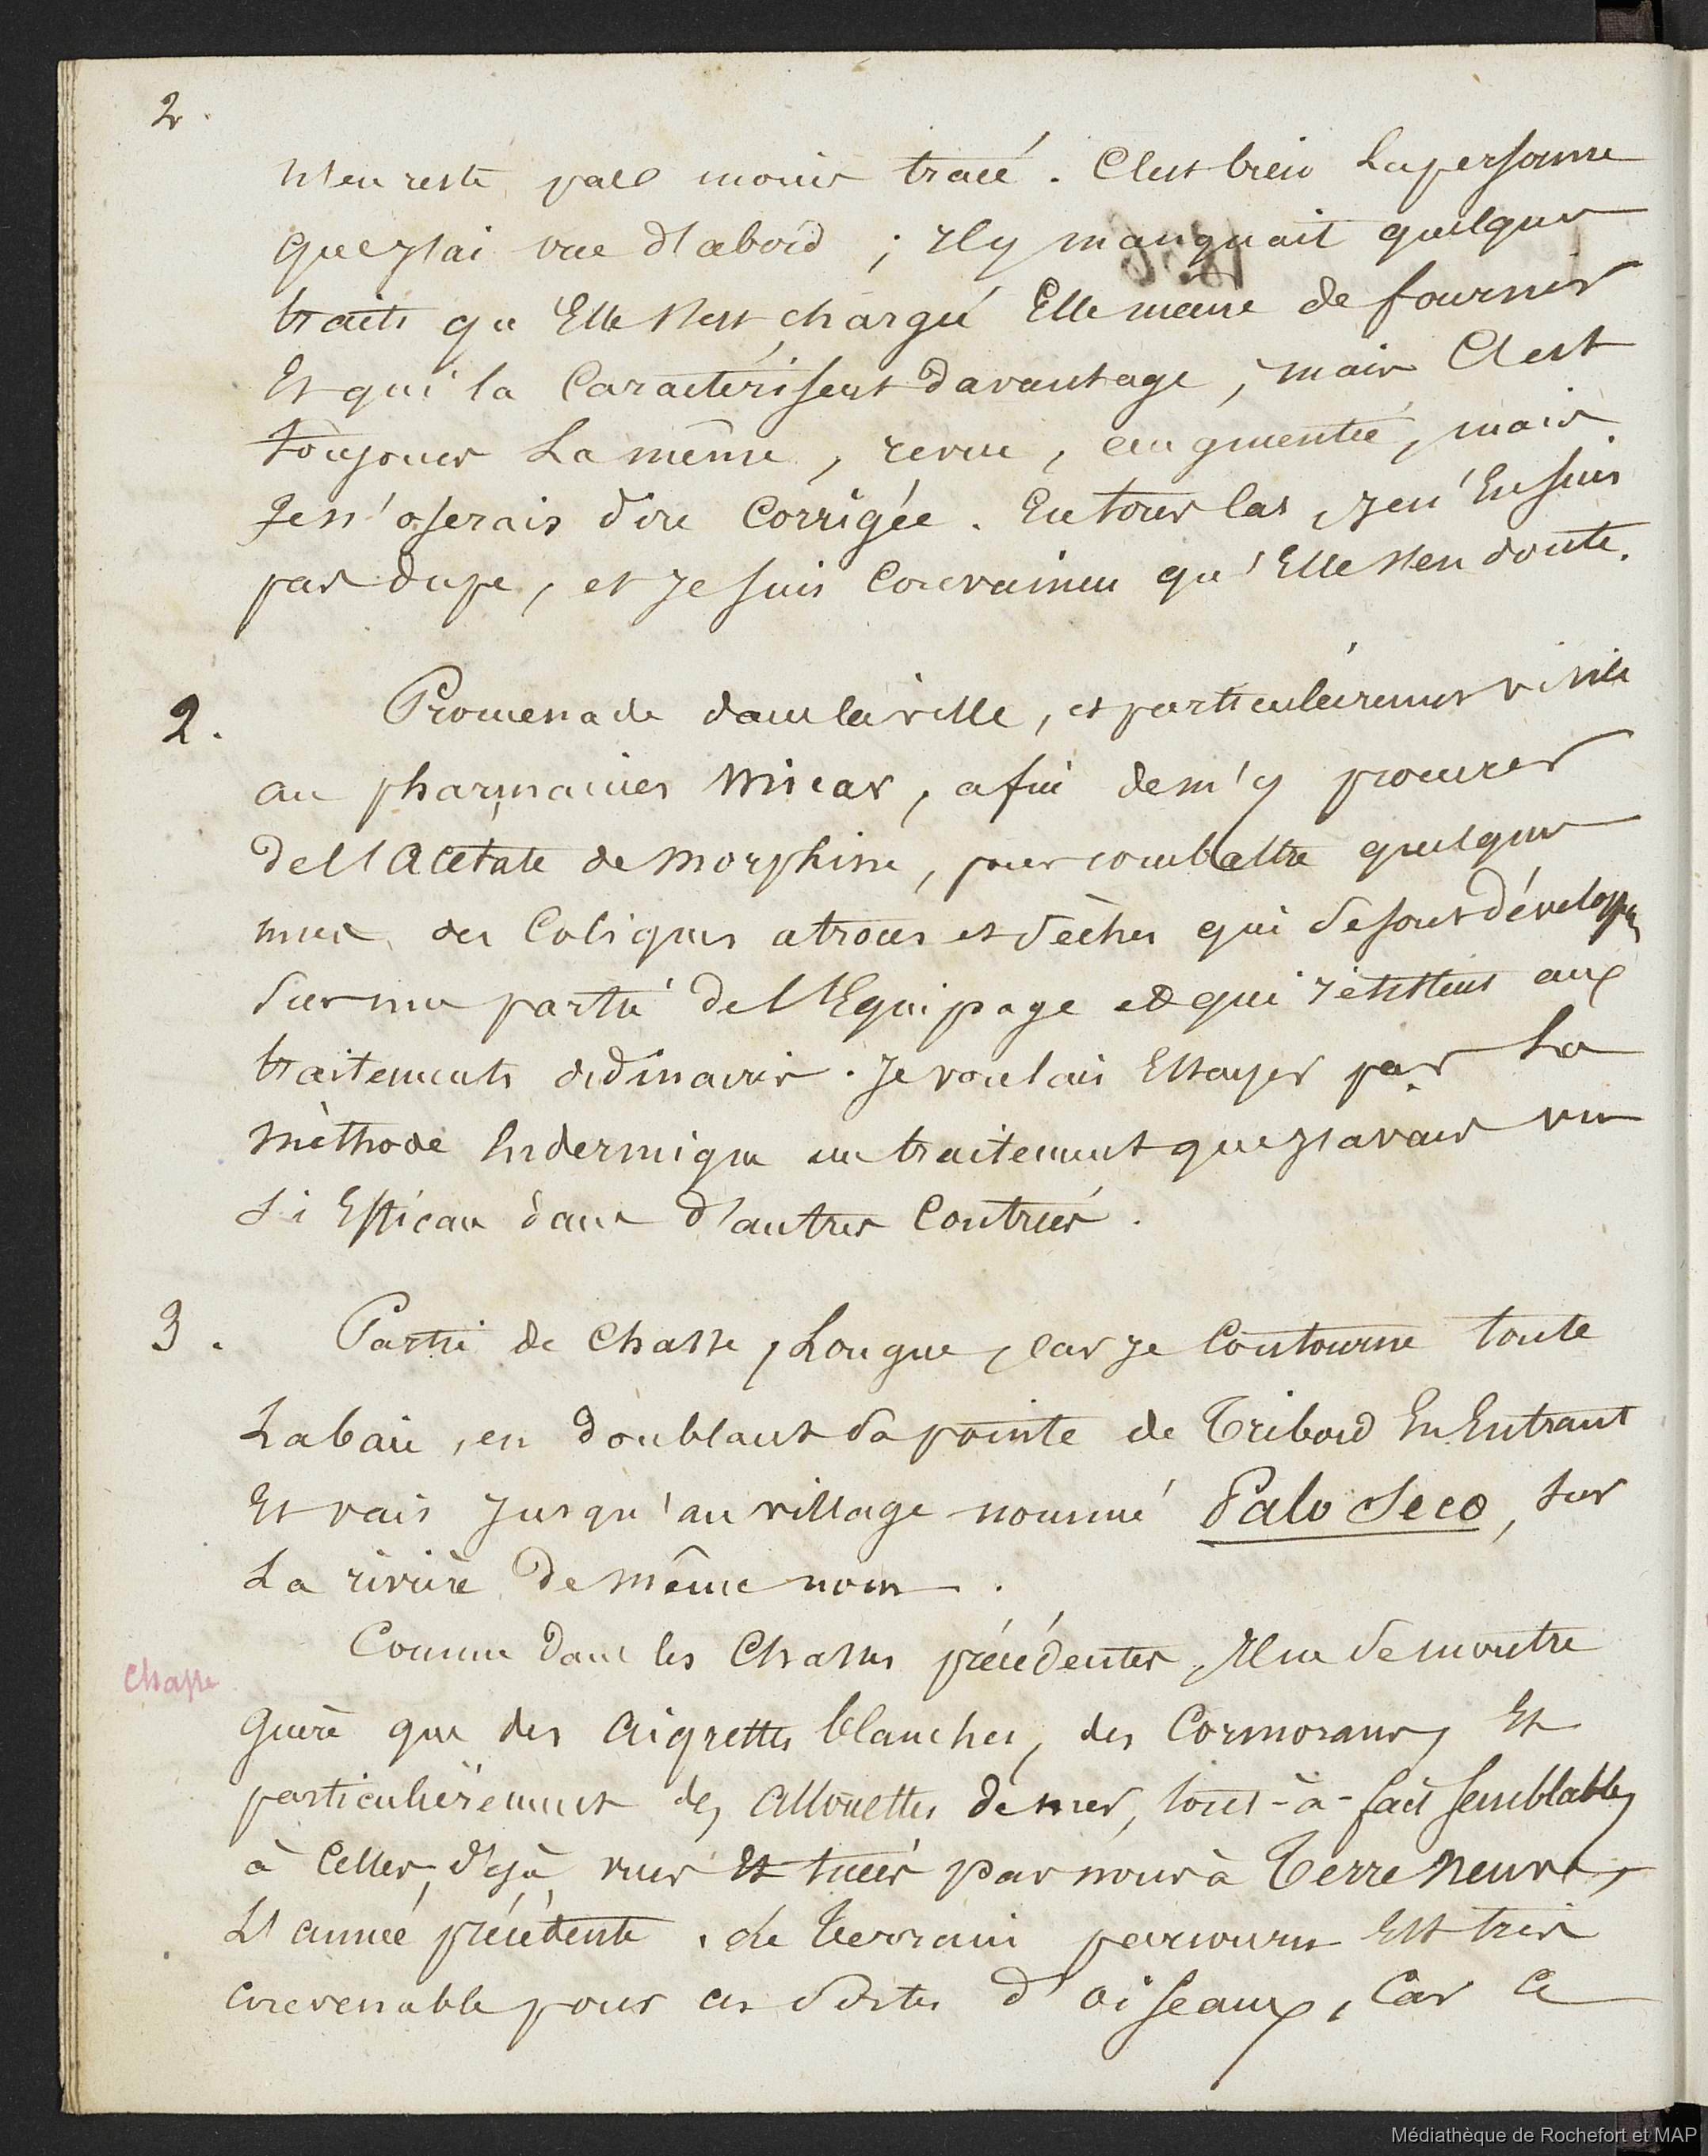 2.
n'en reste pas moins tracé. C'est bien la personne
que j'ai vue d'abord ; il y manquait quelques
traits qu'Elle s'est chargée Elle même de fournir
Et qui la Caractérisent davantage, mais C'est
toujours la même, revue, augmentée, mais
Je n'oserais dire Corrigée. En tous cas, je n'En suis
pas dupe, et je suis Convaincu qu'Elle s'en doute.
2. Promenade dans la ville, et particulièrement visite
au pharmacien, afin de m'y procurer
de l'Acétate de Morphine, pour combattre quelques
unes des Coliques atroces et sèches qui se sont développées
sur une partie de l'Equipage et qui résistent aux
traitements ordinaires. Je voulais Essayer par la
Méthode Endermique un traitement que j'avais vu
si Efficace dans d'autres Contrées.
3. Partie de Chasse, Longue, car je Contourne toute
La baie, en doublant sa pointe de Tribord En Entrant
Et vais jusqu'au village nommé Palo Seco, sur
La rivière de même nom.
Comme dans les Chasses précédentes, Il ne se montre
Chasse
Guère que des Aigrettes blanches, des Cormorans, Et
particulièrement des Allouettes de mer, tout-à-fait semblables
à Celles, déjà vues Et tuées par nous à Terre Neuve,
L'année précédente. Le Terrain parcouru Est très
Convenable pour ces sortes d'oiseaux, Car Ce
Médiathèque de Rochefort et MAP